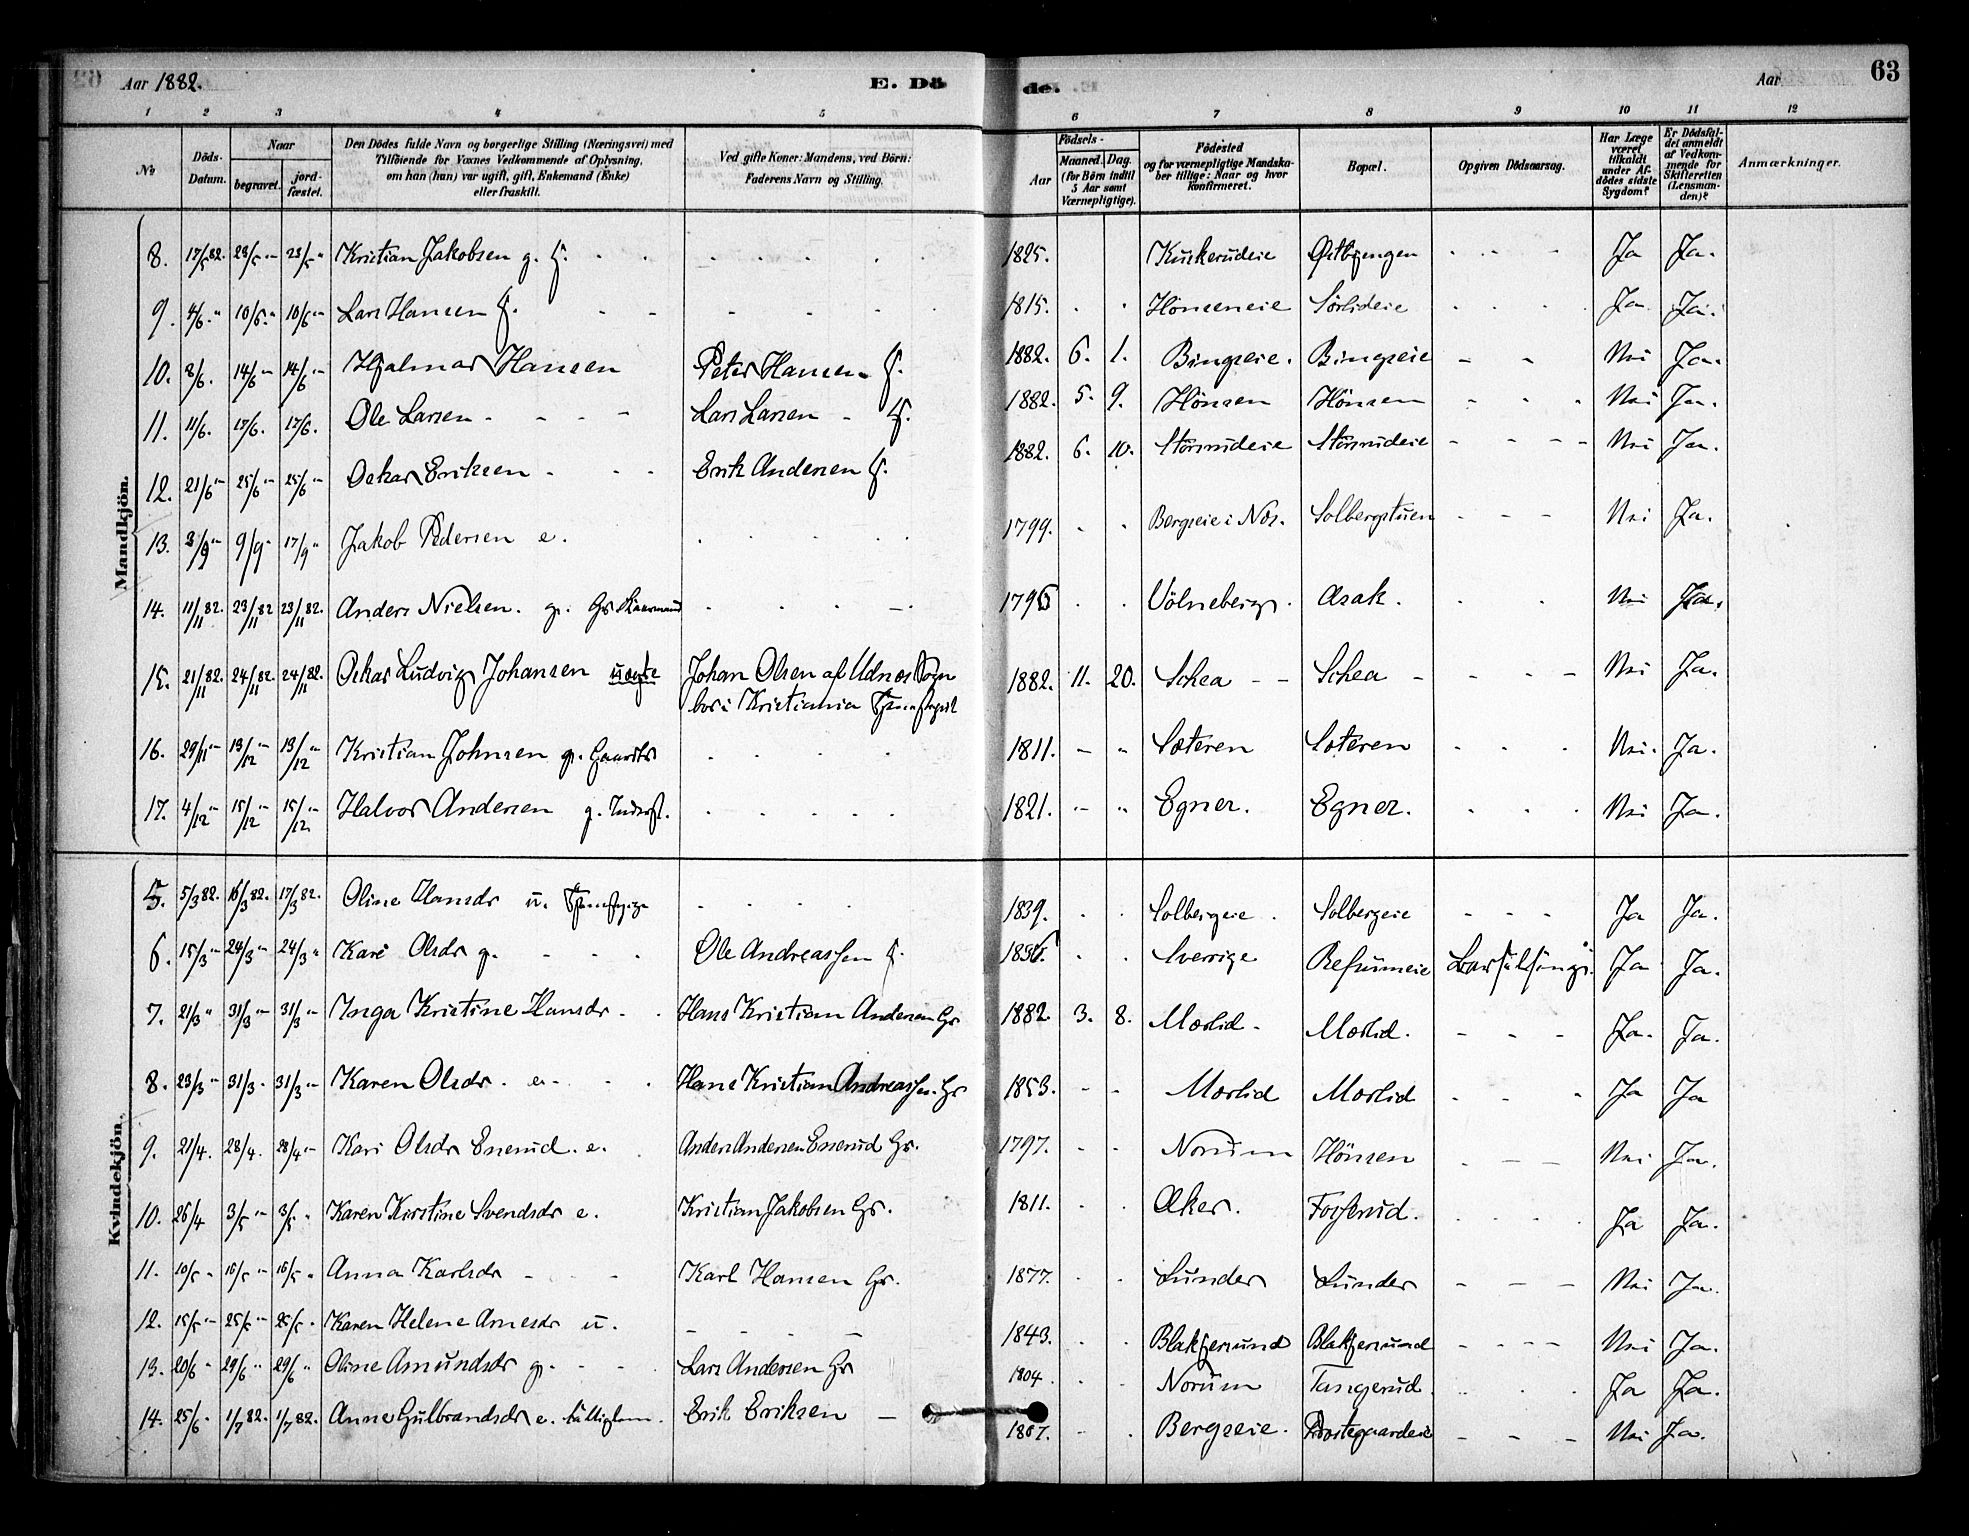 Aar 1882.
E. Dö
de.
Aar
63
1 2 3 4 5 6 7 8 9 10 11 12
No
Döds-Datum.
Naar
begravet.
jord-fæstet.
Den Dödes fulde Navn og borgerlige Stilling (Næringsvei) med Tilföiende for Voxnes Vedkommende af Oplysning, om han (hun) var ugift, gift, Enkemand (Enke) eller fraskilt.
Ved gifte Koner: Mandens, ved Börn: Faderens Navn og Stilling.
Födsels-
Aar
Maaned. Dag.
(for Börn indtil 5 Aar samt Værnepligtige).
Födested og for værnepligtige Mandskaber tillige: Naar og hvor Konfirmeret.
Bopæl.
Opgiven Dödsaarsag.
Har Læge været tilkaldt under Afdödes sidste Sygdom?
Er Dödsfaldet anmeldt af Vedkommende for Skifteretten (Lensmanden)?
Anmærkninger.
Mandkjön.
8. 17/5 82. 23/5 " 23/5 " Kristian Jakobsen g. 1825. Kuskerudeie Ja Ja.
9. 4/6. " 10/6. " 10/6 " Lars Hansen 1815. Hönseneie Sörlideie Ja Ja.
10. 8/6. 14/6 " 14/6 " Hjalmar Hansen Peter Hansen 1882. 6. 1. Bingseie. Bingseie Nei Ja.
11. 11/6. 17/6. 17/6. Ole Larsen Lars Larsen 1882. 5. 9. Hönsen Hönsen Nei Ja.
12. 21/6 " 25/6 " 25/6 " Oskar Eriksen Erik Andersen 1882. 6. 10. Störsrudeie Störsrudeie Nei Ja.
13. 3/9 " 9/9 " 17/9 " Jakob Pedersen e. 1799. Bergseie i Næs. Solbergstuen Nei Ja.
14. 11/11 82. 23/11 82 23/11 82. Anders Nielsen. g. Gr. Völneberg. Asak. Nei Ja.
15. 21/11 82. 24/11 82 24/11 82. Oskar Ludvig Johansen uægte Johan Olsen af Udnes Sogn
bor i Kristiania 1882. 11. 20. Schea Schea Nei Ja.
16. 29/11 " 13/12 " 13/12 " Kristian Johnsen g. 1811. Sæteren Sæteren Nei. Ja.
17. 4/12 " 15/12 " 15/12 " Halvor Andersen g. Inderst. 1821. Egner. Egner. Nei Ja.
Kvindekjön.
5. 5/3 82. 16/3 82. 17/3 82. Oline Hansdr u. 1839. Solbergeie Solbergeie Ja Ja.
6. 15/3 " 24/3 " 24/3 " Kari Olsdr g. Ole Andreassen Sverrige Refsumeie Ja Ja.
7. 21/3 " 31/3 " 31/3 " Inga Kristine Hansdr Hans Kristian Andersen Gr 1882 3. 8. Mærlid Mærlid. Ja. Ja.
8. 23/3 " 31/3 " 31/3 " Karen Olsdr. e. Hans Kristian Andreassen. Gr 1853. Mærlid Mærlid Ja Ja
9. 21/4. 28/4. 28/4 " Kari Olsdr Enerud. e. Anders Andersen Enerud Gr. 1797. Norum Hönsen Nei Ja.
10. 26/4 3/5 " 3/5 " Karen Kirstine Svendsdr e. Kristian Jakobsen Gr. 1811. Aker. Fosserud. Ja Ja.
11. 10/5 " 16/5 " 16/5 " Anna Karlsdr Karl Hansen Gr. 1877. Lunder Lunder Nei Ja.
12. 15/5 " 25/5 " 25/5 " Karen Helene Arnesdr u. 1843. Blakjerund Blakjerund Nei Ja.
13. 20/6 " 29/6 " 29/6 " Oline Amundsdr g. Lars Andersen Gr 1804 Norum Tangerud. Ja Ja.
14. 25/6 " 1/7 82. 1/7 82. Anne Gulbrandsdr e. Erik Eriksen 1807. Bergseie. Prestegaardeie Nei Ja.